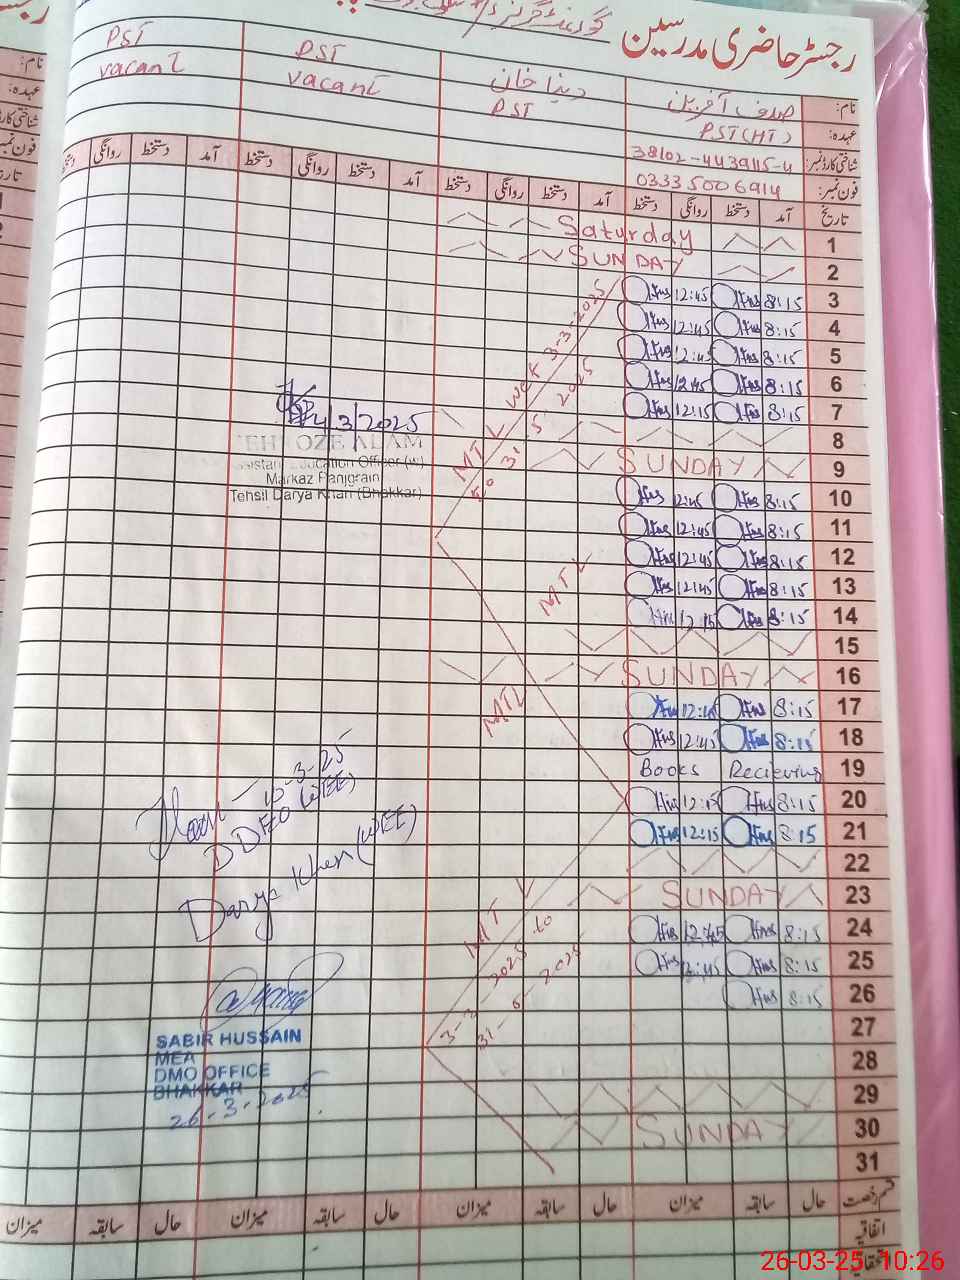 رجسٹر حاضری مدرسین
نام: صدف آفرین
PST
PST
عہدہ: PST (HT)
PST
vacant
vacant
شناختی کارڈ نمبر: 38102-4439115-4
فون نمبر: 03335006914
تاریخ آمد دستخط روانگی دستخط آمد دستخط روانگی دستخط آمد دستخط روانگی دستخط آمد دستخط روانگی
1 Saturday
2 SUNDAY
3 8:15 12:45
4 8:15 12:45
5 8:15 12:45
6 8:15 12:45
7 8:15 12:15
8
9 SUNDAY
10 8:15 12:45
11 8:15 12:45
12 8:15 12:45
13 8:15 12:45
14 8:15 12:15
15
16 SUNDAY
17 8:15 12:45
18 8:15 12:45
19 Books Recieving
20 8:15 12:15
21 8:15 12:15
22
23 SUNDAY
24 8:15 12:45
25 8:15 12:45
26 8:15
27
28
29
30 SUNDAY
31
MTL
3-3-2025
31 5 2025
MTL
MTL
MTL
3-3-2025 to
2025
4/3/2025
ALAM
Education Officer (w)
Markaz Panjgrain
Tehsil Darya Khan (Bhakkar)
3-25
DDEO (WEE)
Darya Khan (WEE)
SABIR HUSSAIN
MEA
DMO OFFICE
BHAKKAR
26-3-2025
قسم رخصت حال سابقہ میزان حال سابقہ میزان حال سابقہ میزان حال سابقہ میزان
اتفاقیہ
26-03-25 10:26